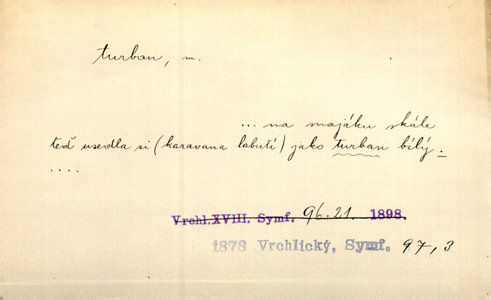 turban, m.
... na majáku skále
teď usedla si (karavana labutí) jako turban bílý.
....
Vrchl.XVIII. Symf. 96.21. 1898.
1878 Vrchlický, Symf. 97,3